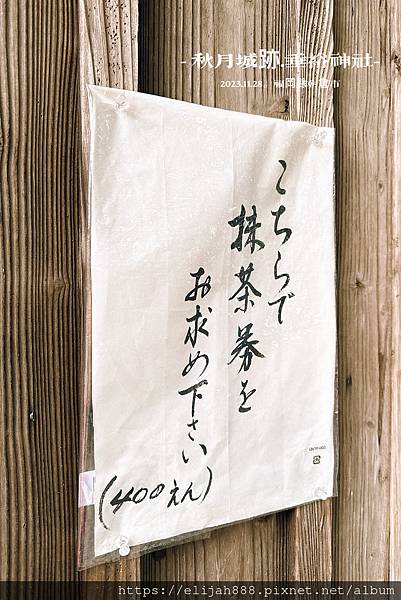 -秋月城跡.垂裕神社-
2023.11.28。福岡縣朝倉市
こちらで
抹茶券を
お求め下さい
(400えん)
https://elijah888.pixnet.net/album